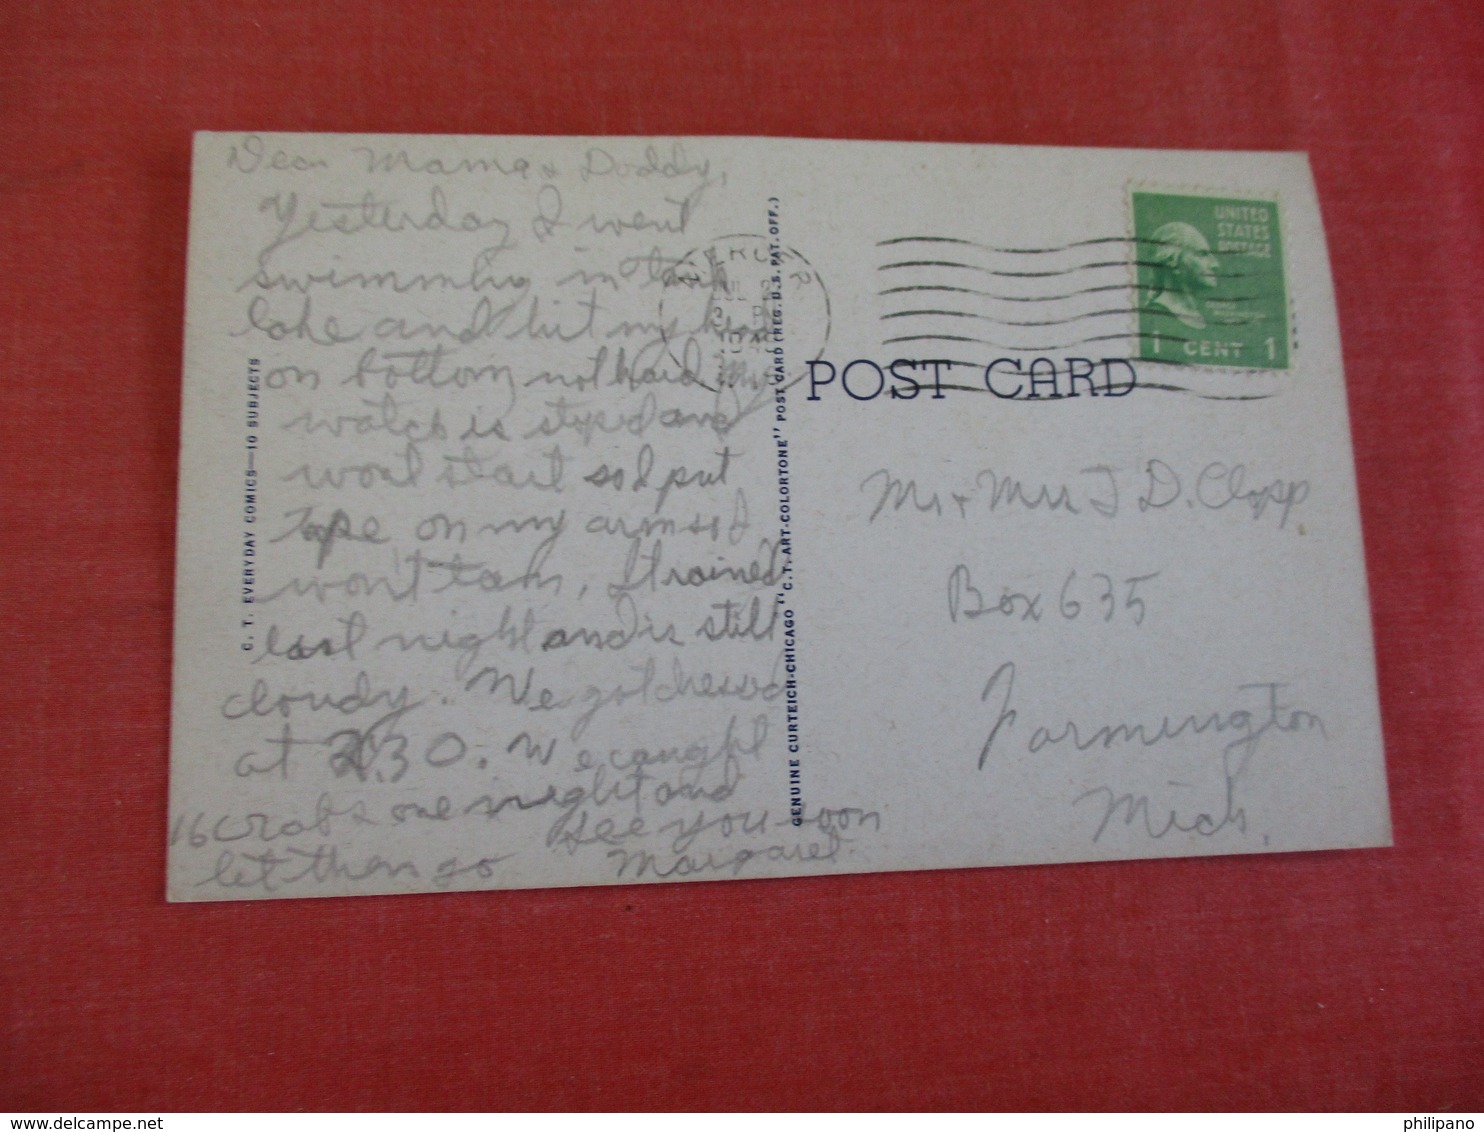 Dear Mama & Daddy,
Yesterday I went
swimming in
lake and hit my head
on bottom not hard My
watch is stoped and
wont start so I put
tape on my arm so I
won't tan, It rained
last night and is still
cloudy. We got dressed
at 2.30. We caught
16 crabs one night and
let them go
see you soon
Margaret.
C. T. EVERYDAY COMICS—10 SUBJECTS
GENUINE CURTEICH-CHICAGO "C. T. ART-COLORTONE" POST CARD (REG. U. S. PAT. OFF.)
JUL
POST CARD
UNITED
STATES
POSTAGE
1 CENT 1
Mr & Mrs J D. Clapp
Box 635
Farmington
Mich.
delcampe.net
philipano